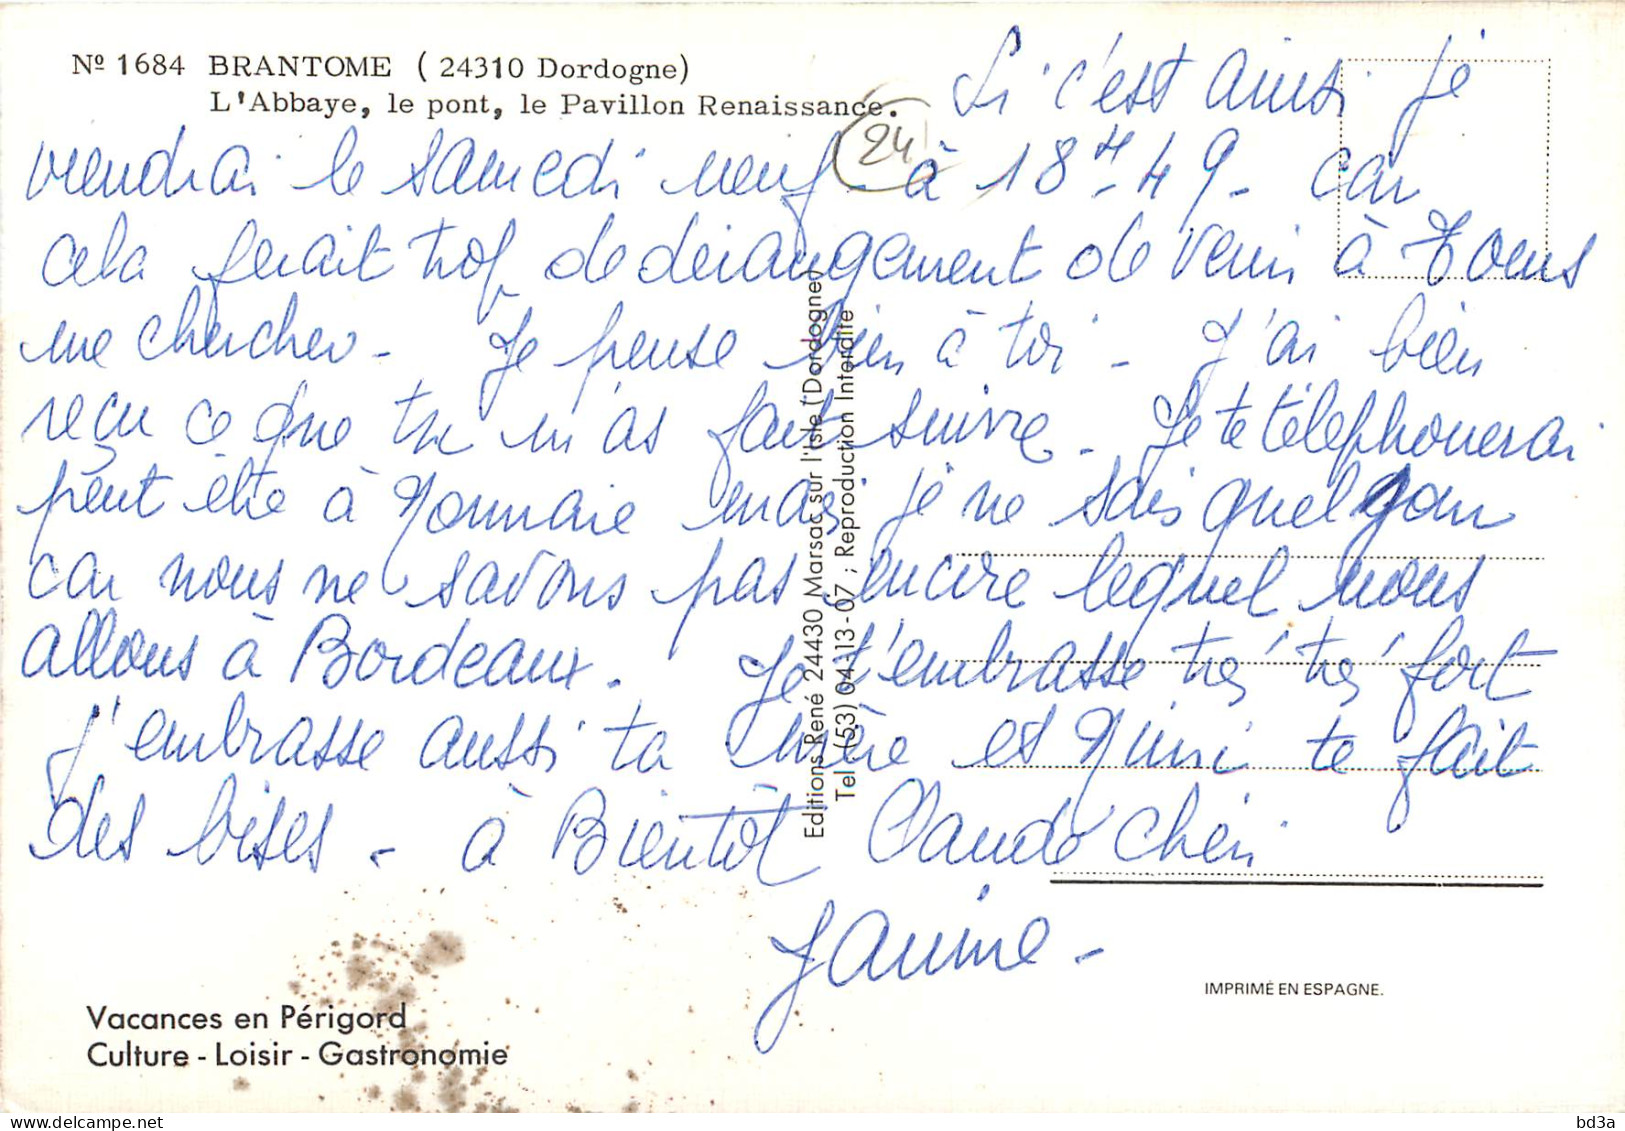 Nº 1684 BRANTOME ( 24310 Dordogne)
L'Abbaye, le pont, le Pavillon Renaissance.
24
Si c'est ainsi je
viendrai le samedi neuf à 18H-49- car
cela ferait trop de dérangement de venir à Tours
me chercher - Je pense bien à toi - J'ai bien
reçu ce que tu m'as fait suivre - Je te téléphonerai
peut être à Monnaie mais je ne sais quel jour
car nous ne savons pas encore lequel nous
allons à Bordeaux. Je t'embrasse très très fort
j'embrasse aussi ta mère et Mimi te fait
des bises - à Bientôt Claude Chéri
Janine -
Editions René 24430 Marsac sur l'Isle (Dordogne)
Tel (53) 04-13-07 ; Reproduction Interdite
Vacances en Périgord
Culture - Loisir - Gastronomie
IMPRIMÉ EN ESPAGNE.
bd3a